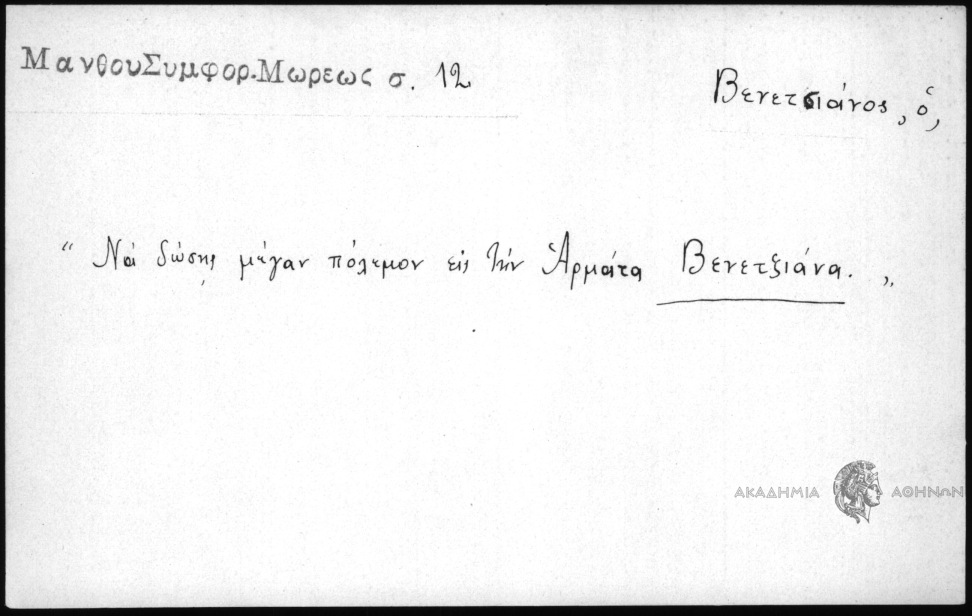 ΜανθουΣυμφορ.Μωρεως σ. 12
Βενετσιάνος, ὁ,
“ Νὰ δώσῃς μέγαν πόλεμον εἰς τὴν Ἀρμάτα Βενετξιάνα. „
ΑΚΑΔΗΜΙΑ ΑΘΗΝΩΝ